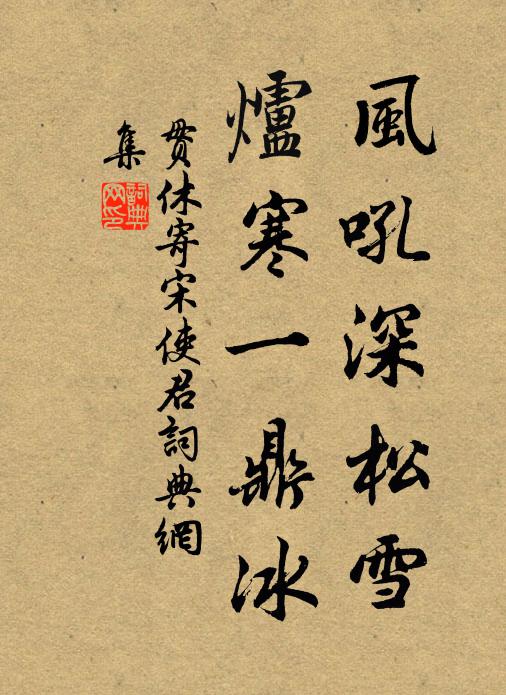 風吼深松雪
爐寒一鼎冰
貫休寄宋使君詞典網
集
詞典网印